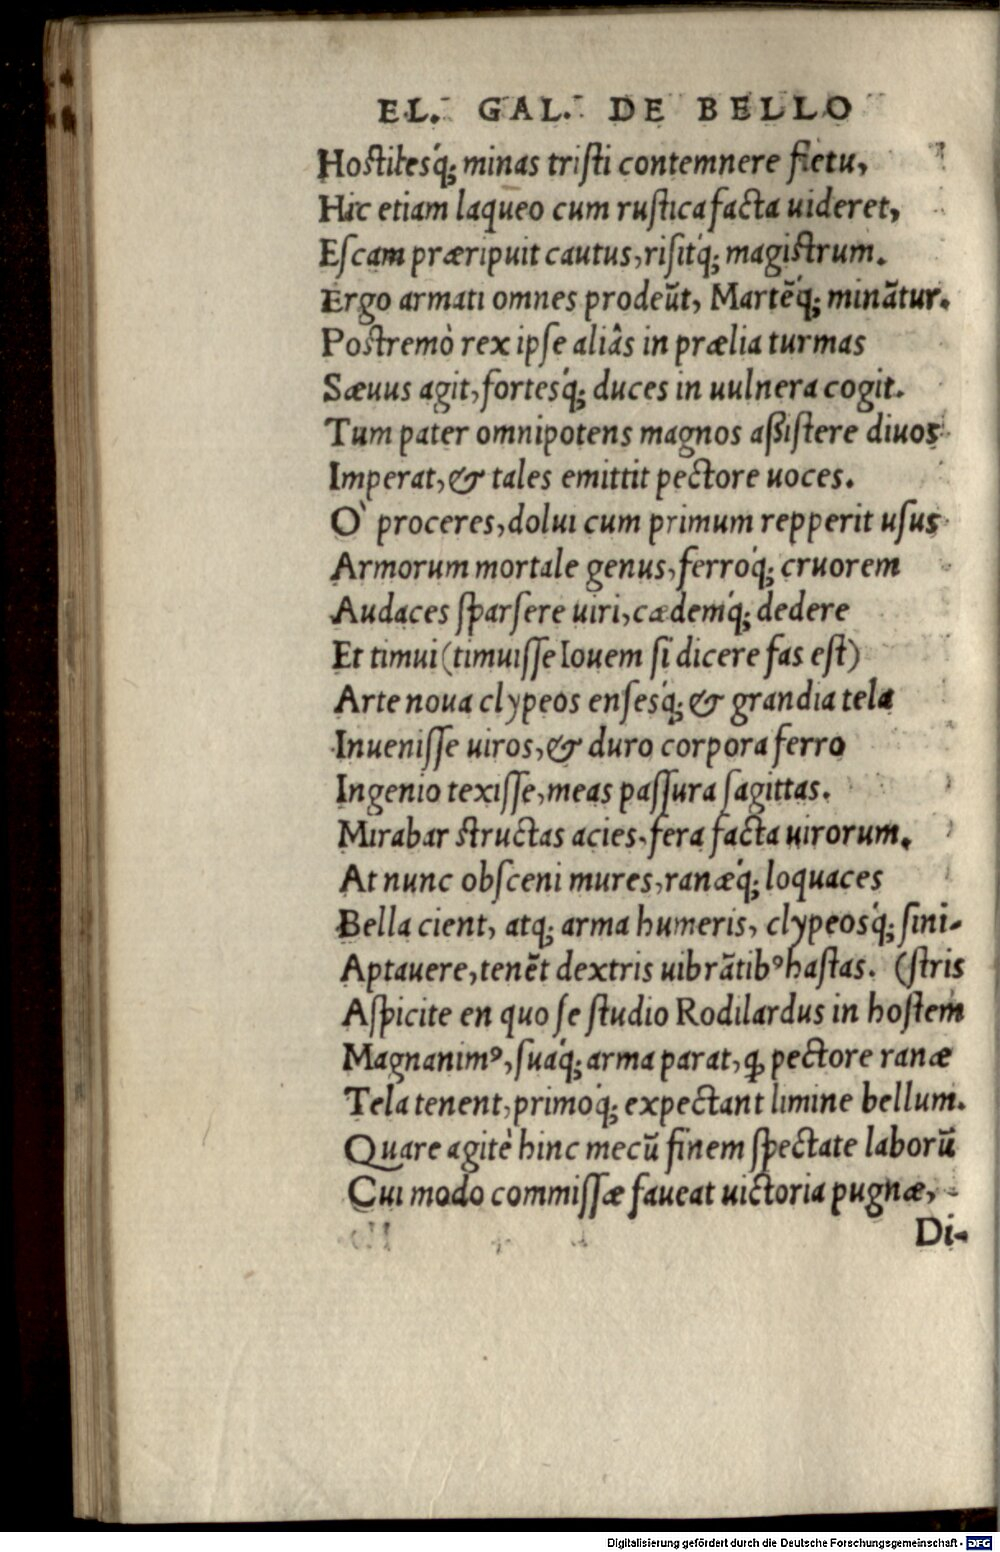 EL. GAL. DE BELLO
Hostilesq́; minas tristi contemnere fletu,
Hic etiam laqueo cum rustica facta uideret,
Escam præripuit cautus, risitq́; magistrum.
Ergo armati omnes prodeũt, Martẽq́; minãtur.
Postremò rex ipse aliâs in prælia turmas
Sæuus agit, fortesq́; duces in uulnera cogit.
Tum pater omnipotens magnos aßistere diuos
Imperat, & tales emittit pectore uoces.
O` proceres, dolui cum primum repperit usus
Armorum mortale genus, ferroq́; cruorem
Audaces sparsere uiri, cædemq́; dedere
Et timui (timuisse Iouem si dicere fas est)
Arte noua clypeos ensesq́; & grandia tela
Inuenisse uiros, & duro corpora ferro
Ingenio texisse, meas passura sagittas.
Mirabar structas acies, fera facta uirorum.
At nunc obsceni mures, ranæq́; loquaces
Bella cient, atq; arma humeris, clypeosq́; sini-
Aptauere, tenẽt dextris uibrãtibꝰ hastas. (stris
Aspicite en quo se studio Rodilardus in hostem
Magnanimꝰ, suaq́; arma parat, ꝗ pectore ranæ
Tela tenent, primoq́; expectant limine bellum.
Quare agitè hinc mecũ finem spectate laborũ
Cui modo commissæ faueat uictoria pugnæ,
Di-
Digitalisierung gefördert durch die Deutsche Forschungsgemeinschaft - DFG